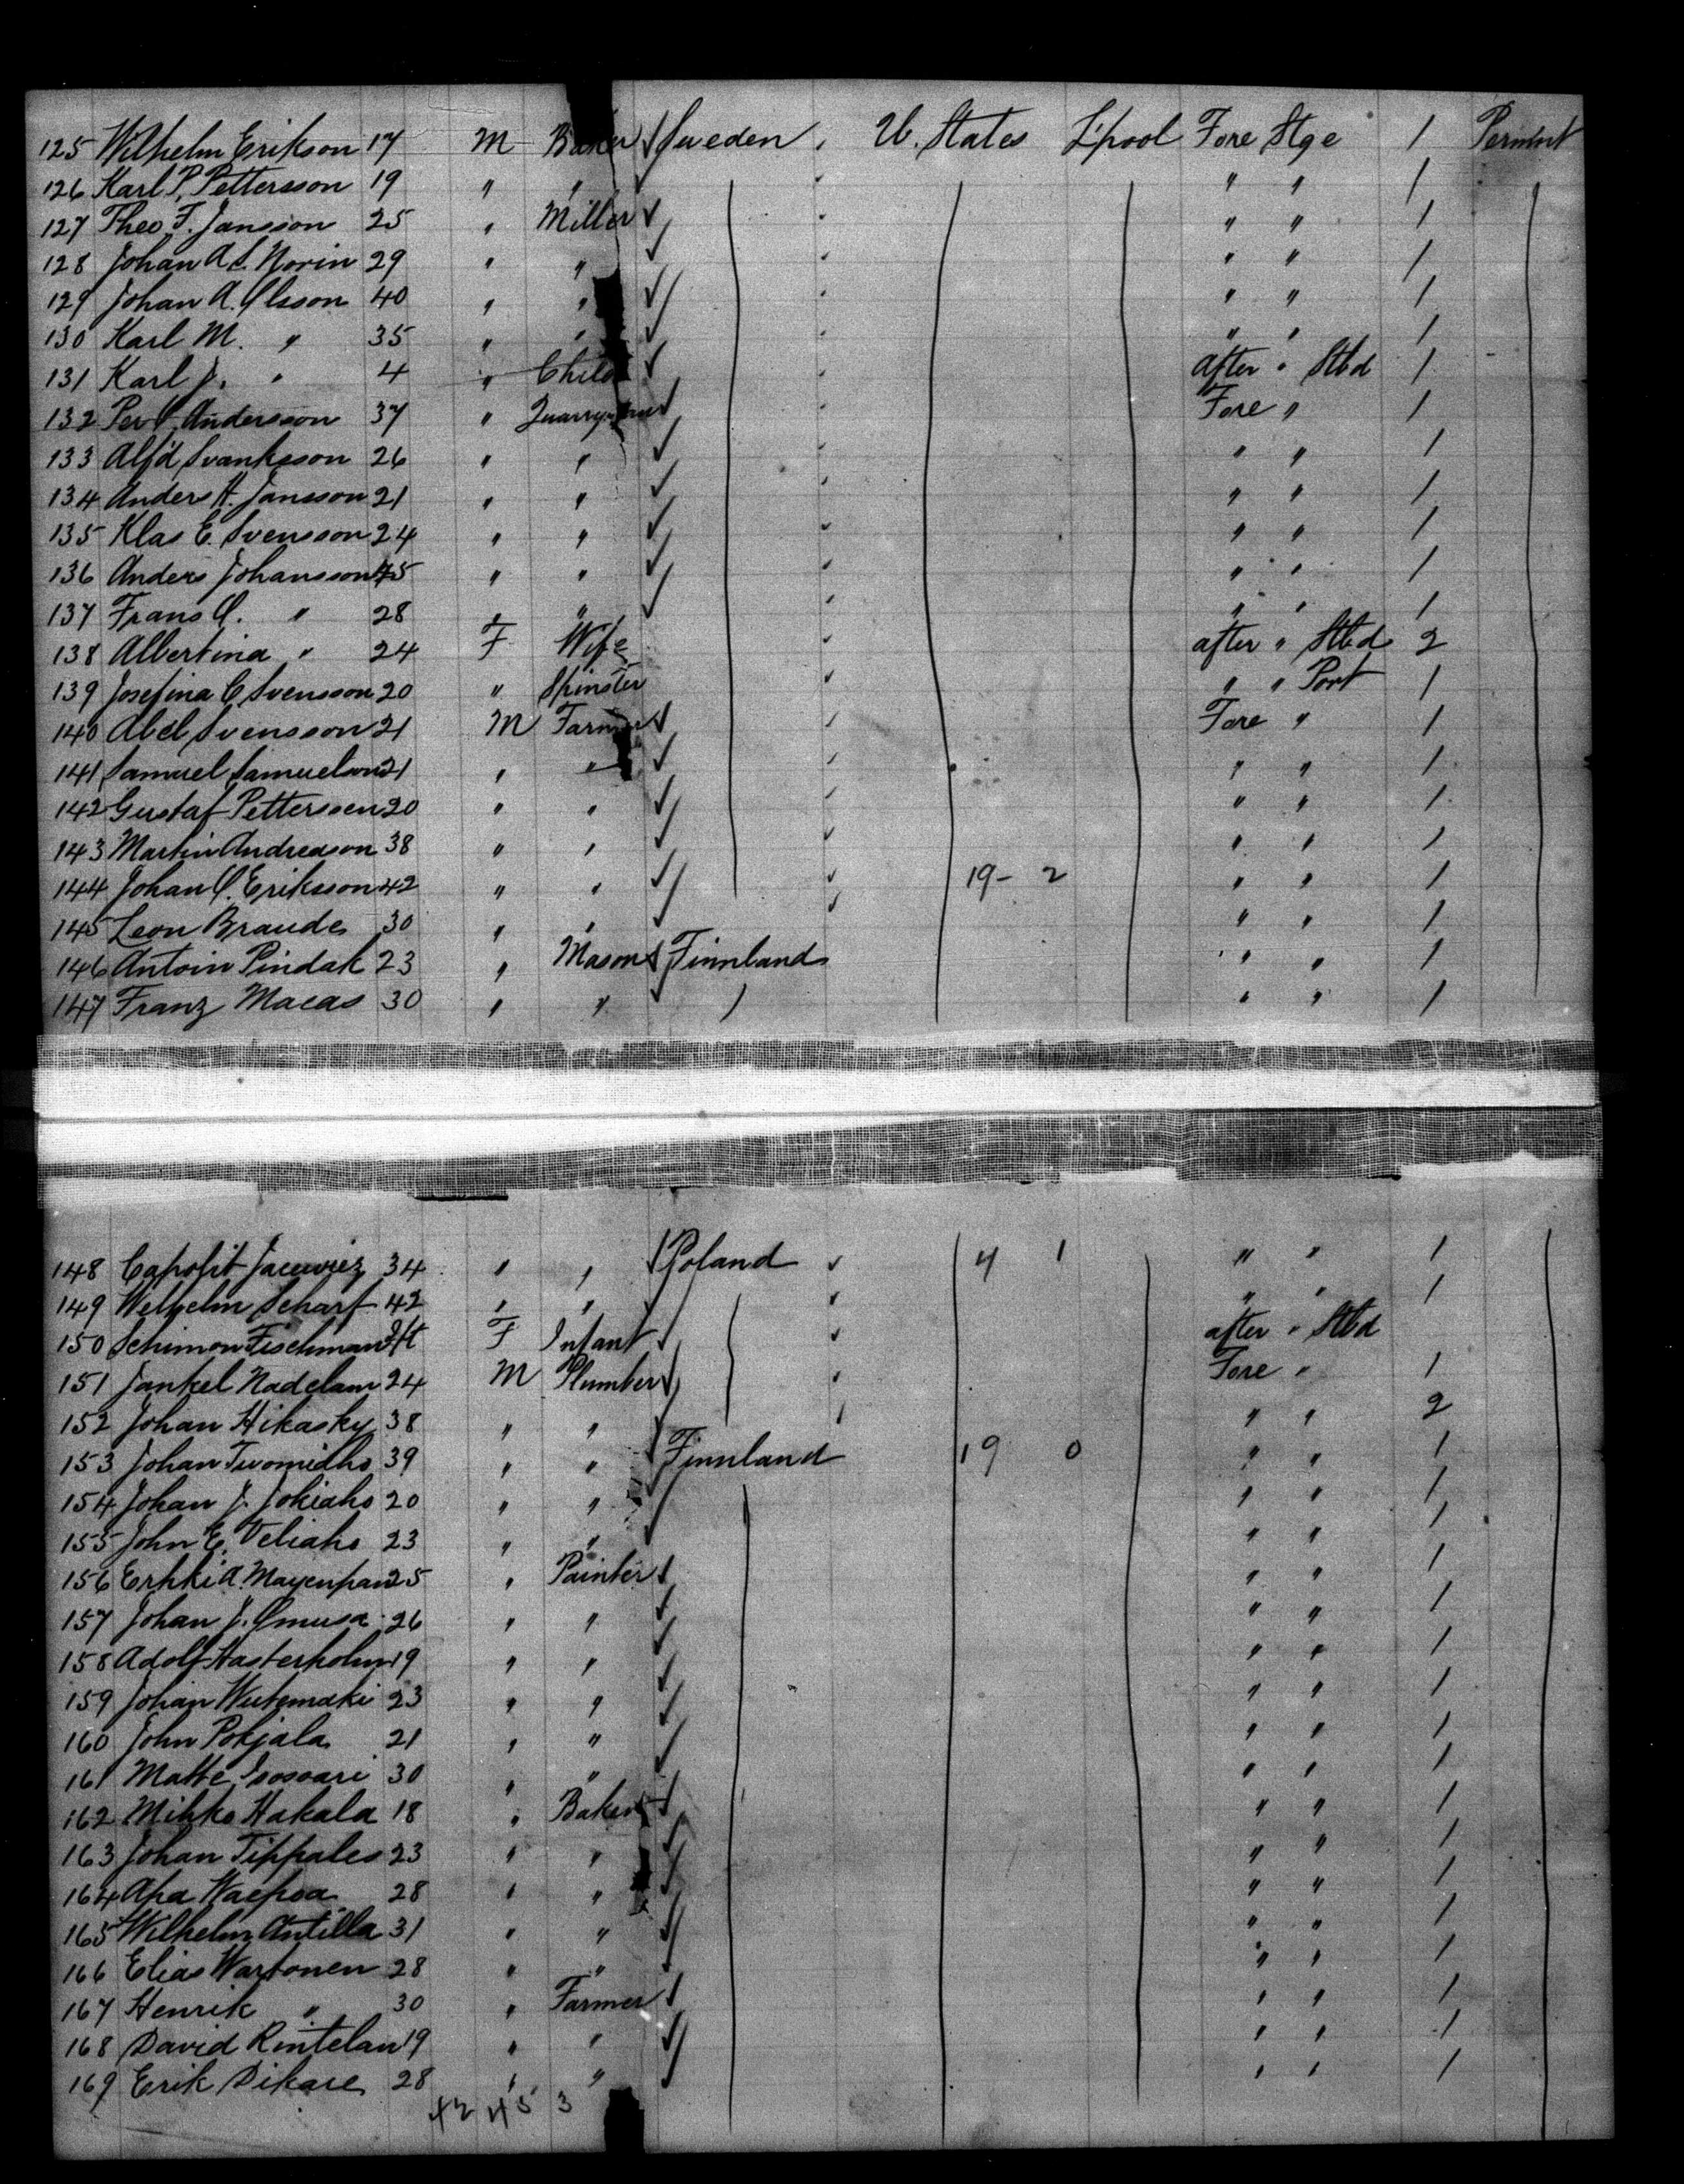 125 Wilhelm Erikson 17 M Baker ✓ Sweden U. States L'pool Fore Stge 1 Permnt
126 Karl P. Pettersson 19 " " ✓ " " 1
127 Theo. F. Jansson 25 " Miller ✓ " " 1
128 Johan A. S. Norin 29 " " ✓ " " 1
129 Johan A. Olsson 40 " " ✓ " " 1
130 Karl M. " 35 " " ✓ " " 1
131 Karl J. " 4 " Child ✓ after " Stbd 1
132 Per Andersson 37 " ✓ Fore " 1
133 Alf'd Svanksson 26 " " ✓ " " 1
134 Anders H. Jansson 21 " " ✓ " " 1
135 Klas E. Svensson 24 " " ✓ " " 1
136 Anders Johansson 45 " " ✓ " " 1
137 Frans O. " 28 " " ✓ " " 1
138 Albertina " 24 F Wife after " Stbd 2
139 Josefina C Svensson 20 " Spinster " " Port 1
140 Abel Svensson 21 M Farmer ✓ Fore " 1
141 Samuel Samuelson 21 " " ✓ " " 1
142 Gustaf Petterssen 20 " " ✓ " " 1
143 Martin Andreason 38 " " ✓ " " 1
144 Johan O. Eriksson 42 " " ✓ 19 - 2 " " 1
145 Leon Braude 30 " " ✓ " " 1
146 Antoin Pindak 23 " Mason ✓ Finnland " " 1
147 Franz Macas 30 " " ✓ " " " 1
148 34 " " ✓ Poland 4 1 " " 1
149 Welhelm Scharf 42 " " ✓ " " 1
150 Schimon Fischman F Infant ✓ after " Stbd
151 Jankel Nadelam 24 M Plumber ✓ Fore " 1
152 Johan Hikasky 38 " " ✓ " " 2
153 Johan 39 " " ✓ Finnland 19 0 " " 1
154 Johan J. Jokiaho 20 " " ✓ " " 1
155 John E. Veliaho 23 " " ✓ " " 1
156 Erkki A. Mayenpan 25 " Painter ✓ " " 1
157 Johan J. Omusa 26 " " ✓ " " 1
158 Adolf Hasterholm 19 " " ✓ " " 1
159 Johan 23 " " ✓ " " 1
160 John Pohjala 21 " " ✓ " " 1
161 Matte Isosaari 30 " " ✓ " " 1
162 Mihko Hakala 18 " Baker ✓ " " 1
163 Johan Tippales 23 " " ✓ " " 1
164 Apa 28 " " ✓ " " 1
165 Wilhelm Antilla 31 " " ✓ " " 1
166 Elias Wartonen 28 " " ✓ " " 1
167 Henrik " 30 " Farmer ✓ " " 1
168 David Rintelan 19 " " ✓ " " 1
169 Erik Dikare 28 " " " " 1
42 45 3